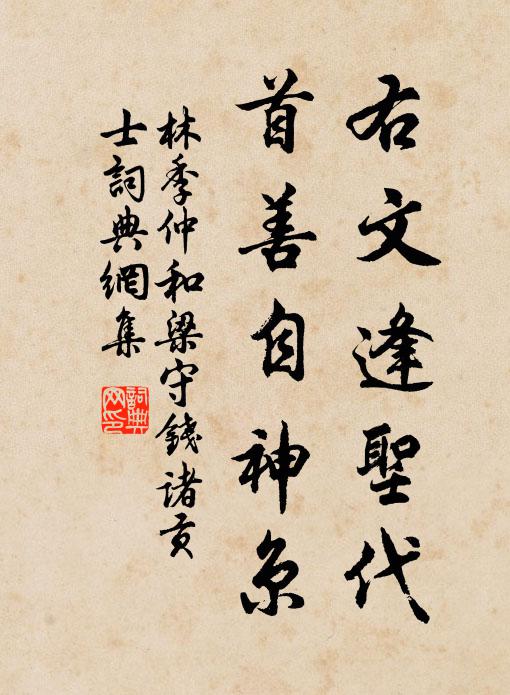 右文逢聖代
首善自神京
林季仲和梁守錢諸貢
士詞典網集
詞典
网印